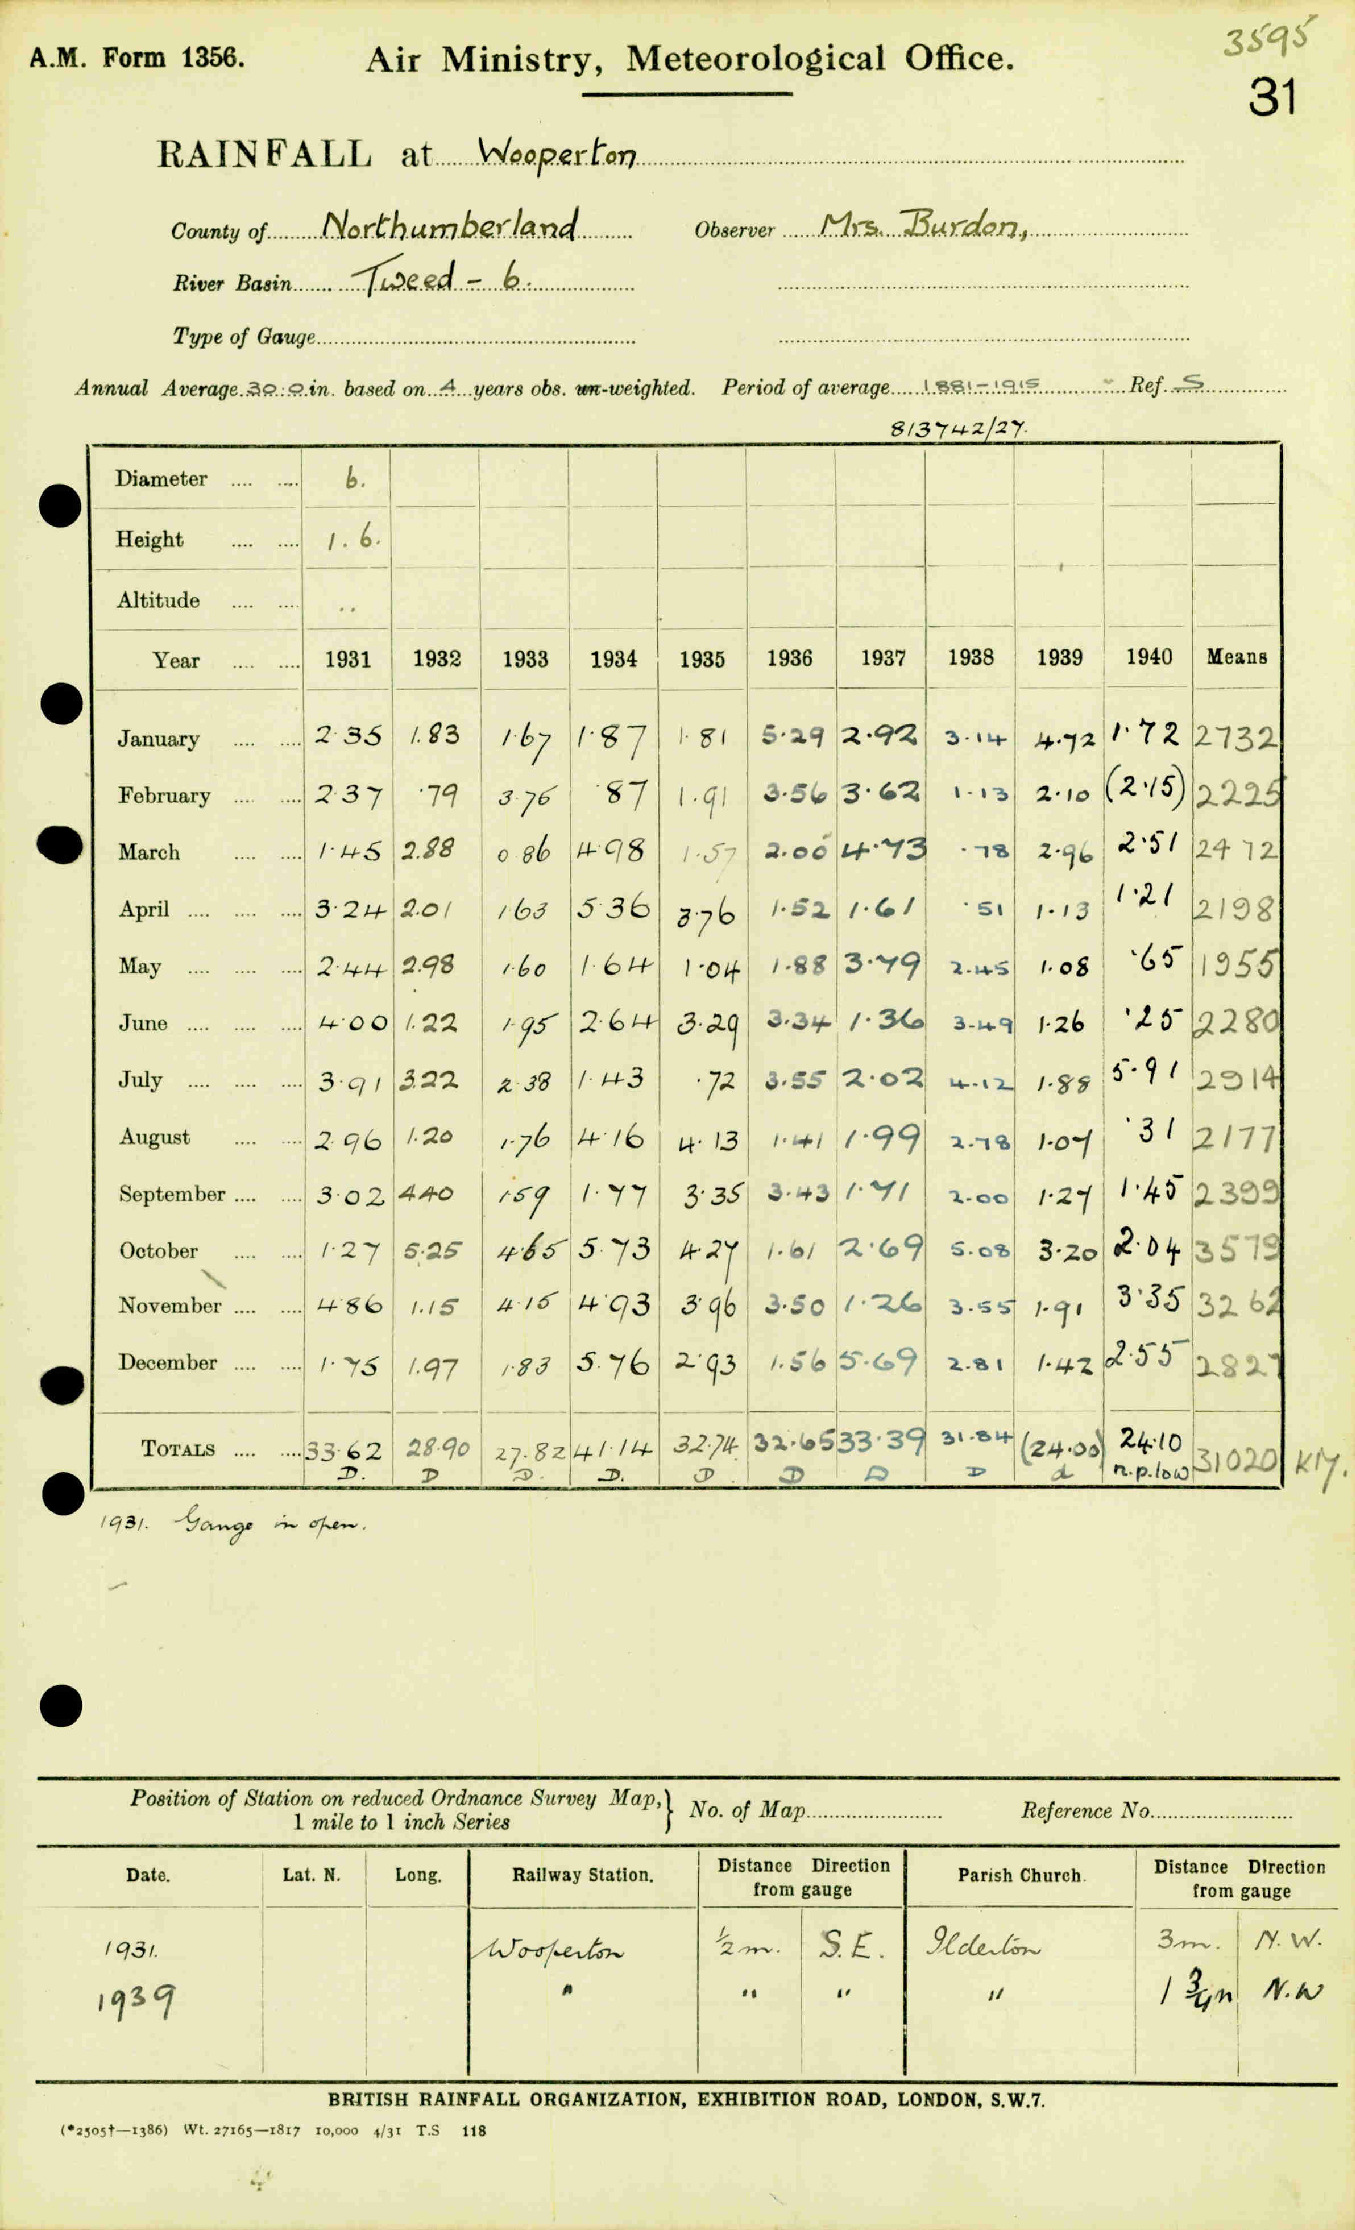 3595
A.M. Form 1356. Air Ministry, Meteorological Office.
31
RAINFALL at Wooperton
County of Northumberland Observer Mrs. Burdon,
River Basin Tweed - 6.
Type of Gauge
Annual Average 30.0 in. based on 4 years obs. un-weighted. Period of average 1881-1915 Ref. S
813742/27.
Diameter .... .... 6.
Height .... .... 1. 6.
Altitude .... .... ..
Year .... .... 1931 1932 1933 1934 1935 1936 1937 1938 1939 1940 Means
January .... .... 2.35 1.83 1.67 1.87 1.81 5.29 2.92 3.14 4.72 1.72 2732
February .... .... 2.37 .79 3.76 .87 1.91 3.56 3.62 1.13 2.10 (2.15) 2225
March .... .... 1.45 2.88 0.86 4.98 1.57 2.00 4.73 .78 2.96 2.51 2472
April .... .... .... 3.24 2.01 1.63 5.36 3.76 1.52 1.61 .51 1.13 1.21 2198
May .... .... .... 2.44 2.98 1.60 1.64 1.04 1.88 3.79 2.45 1.08 .65 1955
June .... .... .... 4.00 1.22 1.95 2.64 3.29 3.34 1.36 3.49 1.26 .25 2280
July .... .... .... 3.91 3.22 2.38 1.43 .72 3.55 2.02 4.12 1.88 5.91 2914
August .... .... 2.96 1.20 1.76 4.16 4.13 1.41 1.99 2.78 1.07 .31 2177
September .... .... 3.02 4.40 1.59 1.77 3.35 3.43 1.71 2.00 1.27 1.45 2399
October .... .... 1.27 5.25 4.65 5.73 4.27 1.61 2.69 5.08 3.20 2.04 3579
November .... .... 4.86 1.15 4.15 4.93 3.96 3.50 1.26 3.55 1.91 3.35 3262
December .... .... 1.75 1.97 1.83 5.76 2.93 1.56 5.69 2.81 1.42 2.55 2827
TOTALS .... .... 33.62 28.90 27.82 41.14 32.74 32.65 33.39 31.84 (24.00) 24.10 31020 KM.
D. D D. D. D D D D d n.p.low
1931. Gauge in open.
Position of Station on reduced Ordnance Survey Map, } No. of Map Reference No.
1 mile to 1 inch Series
Date. Lat. N. Long. Railway Station. Distance Direction from gauge Parish Church. Distance Direction from gauge
1931. Wooperton ½ m. S.E. Ilderton 3 m. N.W.
1939 " " " " 1 ¾ m N.W
BRITISH RAINFALL ORGANIZATION, EXHIBITION ROAD, LONDON, S.W.7.
(*2505†—1386) Wt. 27165—1817 10,000 4/31 T.S 118